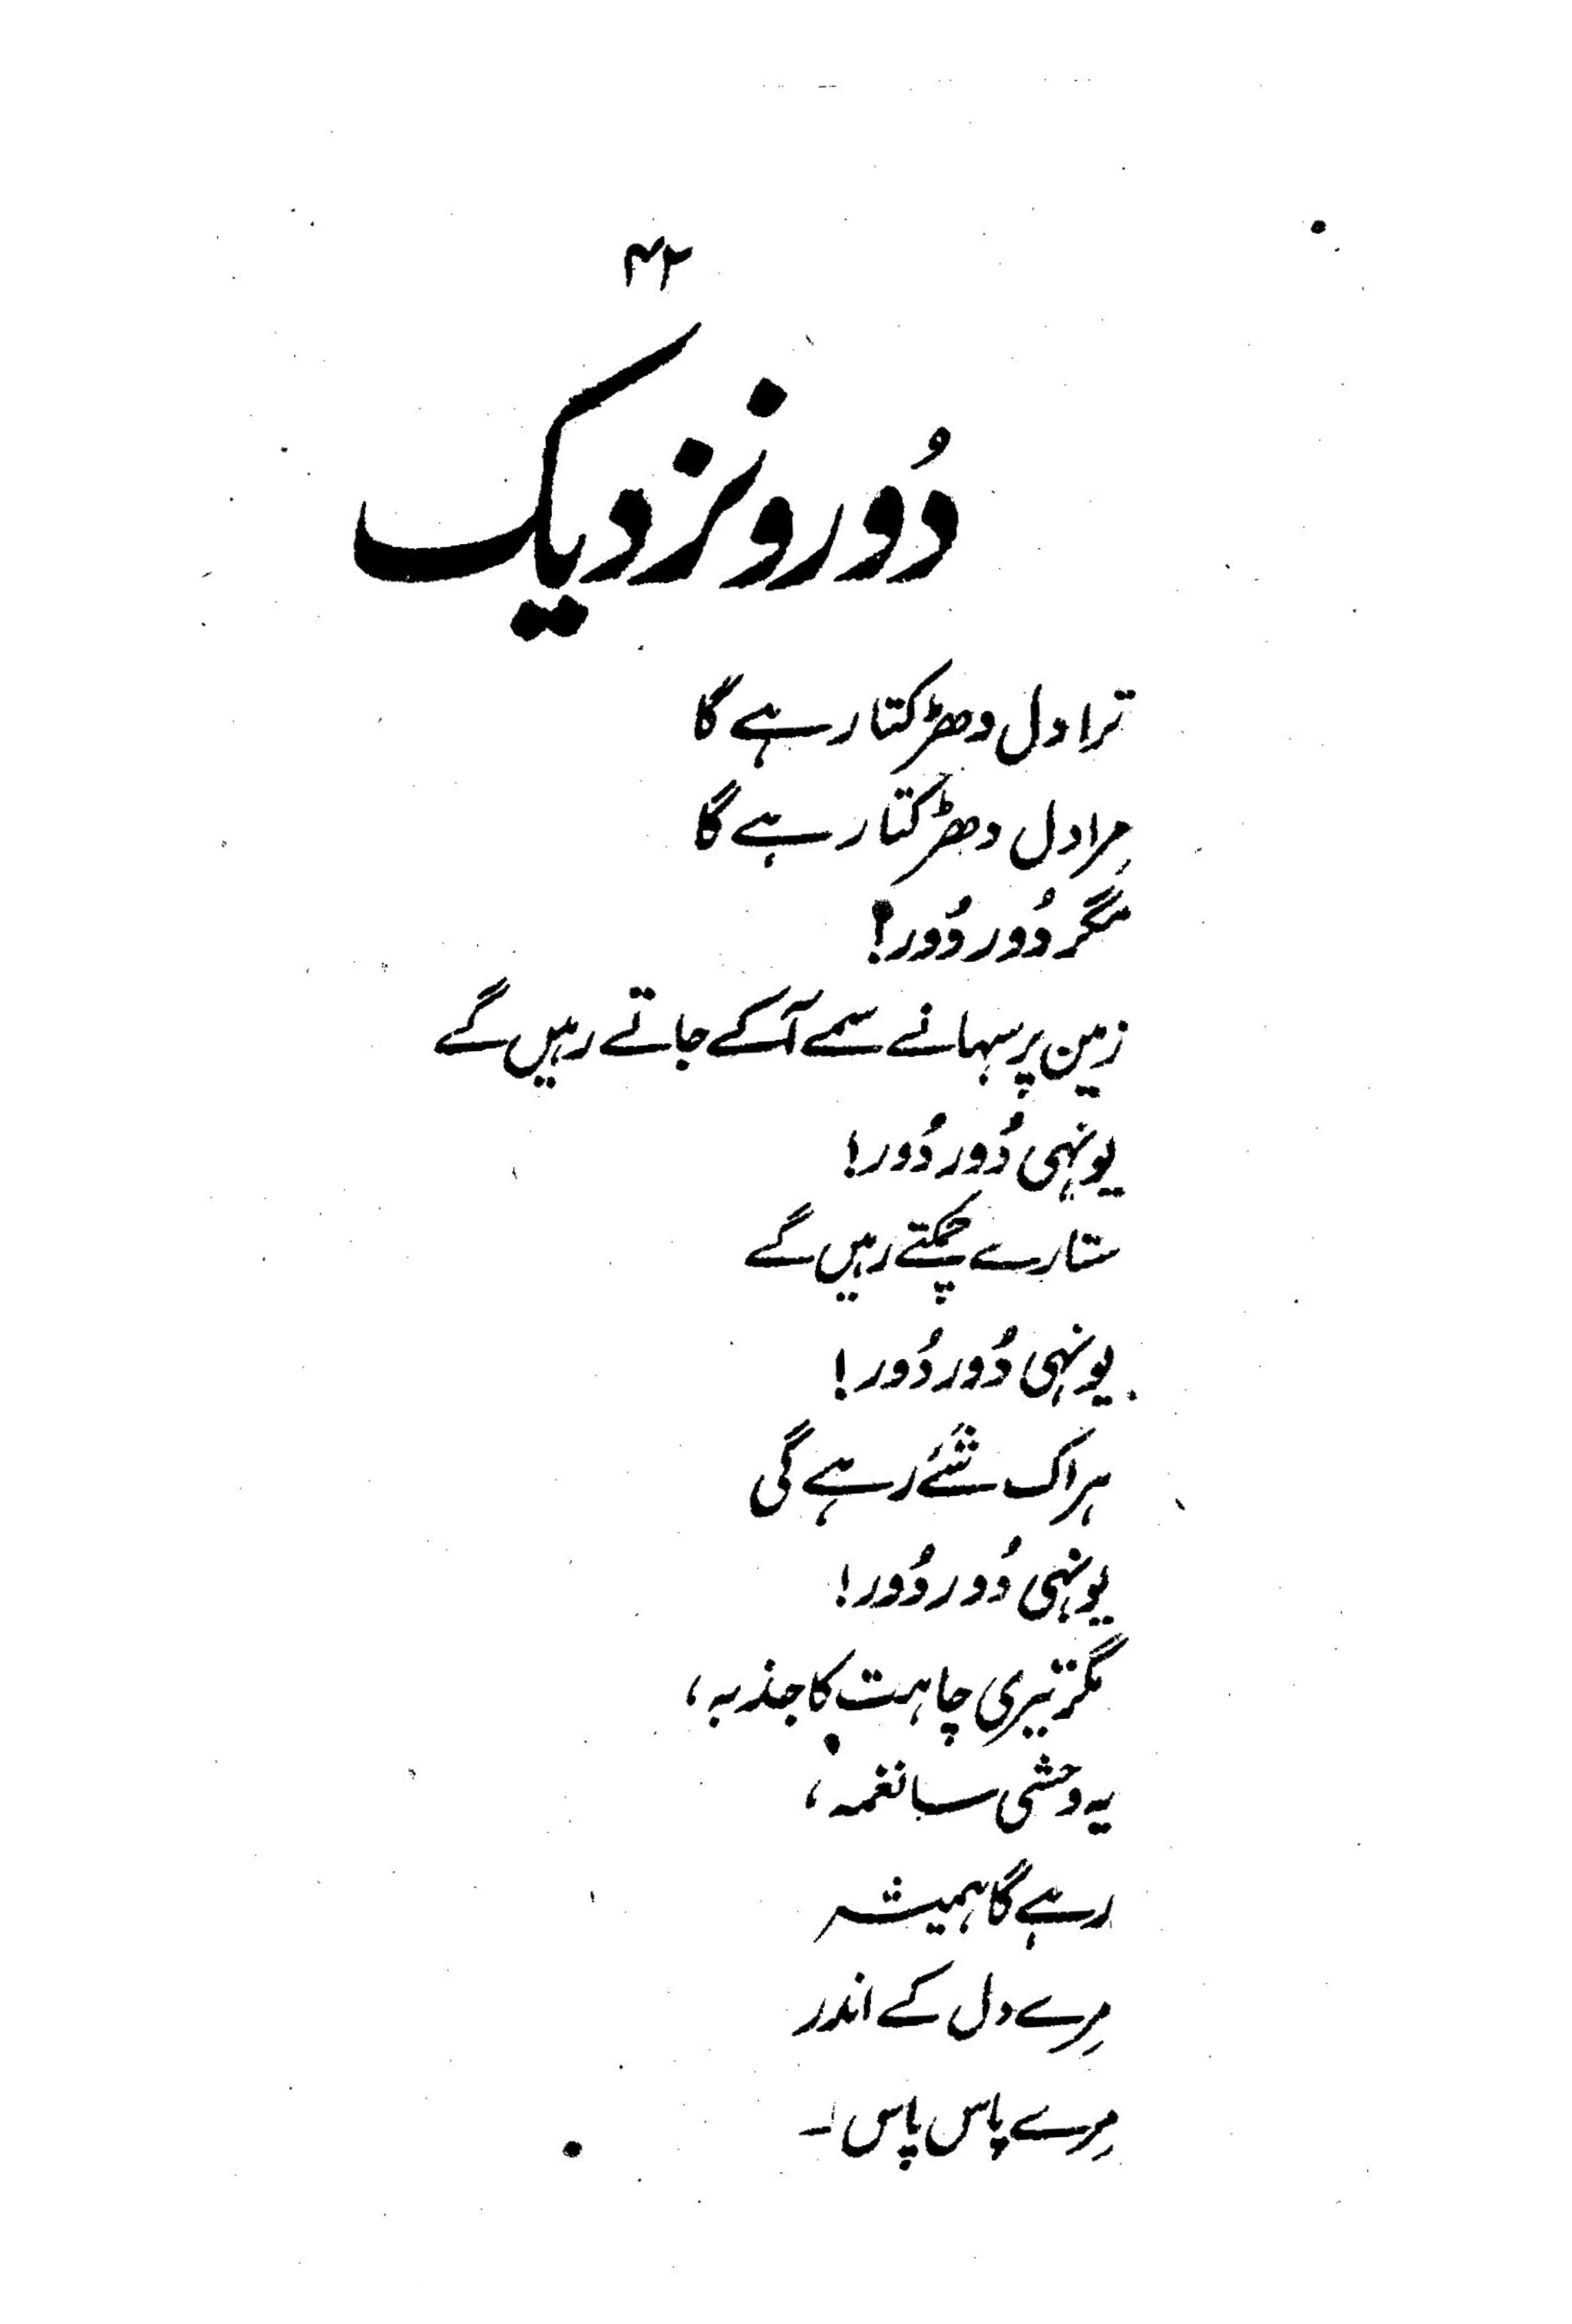 ۴۲
دُور و نزدیک
ترا دل دھڑکتا رہے گا
مِرا دل دھڑکتا رہے گا
مگر دُور دُور!
زمین پر سہانے سمے آکے جاتے رہیں گے
یونہی دُور دُور!
ستارے چمکتے رہیں گے
یونہی دُور دُور!
ہر اک شَے رہے گی
یونہی دُور دُور!
مگر تیری چاہت کا جذبہ،
یہ وحشی سا نغمہ،
رہے گا ہمیشہ
مِرے دل کے اندر
مِرے پاس پاس۔